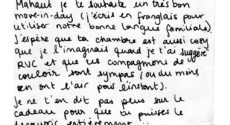 Mahaut je te souhaite un très bon
move-in-day (j'écris en franglais pour
utiliser notre bonne langue familiale)
J'espère que ta chambre est aussi cosy
que je l'imaginais quand je t'ai suggéré
RVC et que tes compagnons de
couloir sont sympas (ou du moins
en ont l'air pour l'instant).
Je ne t'en dit pas plus sur le
cadeau pour que tu puisses le